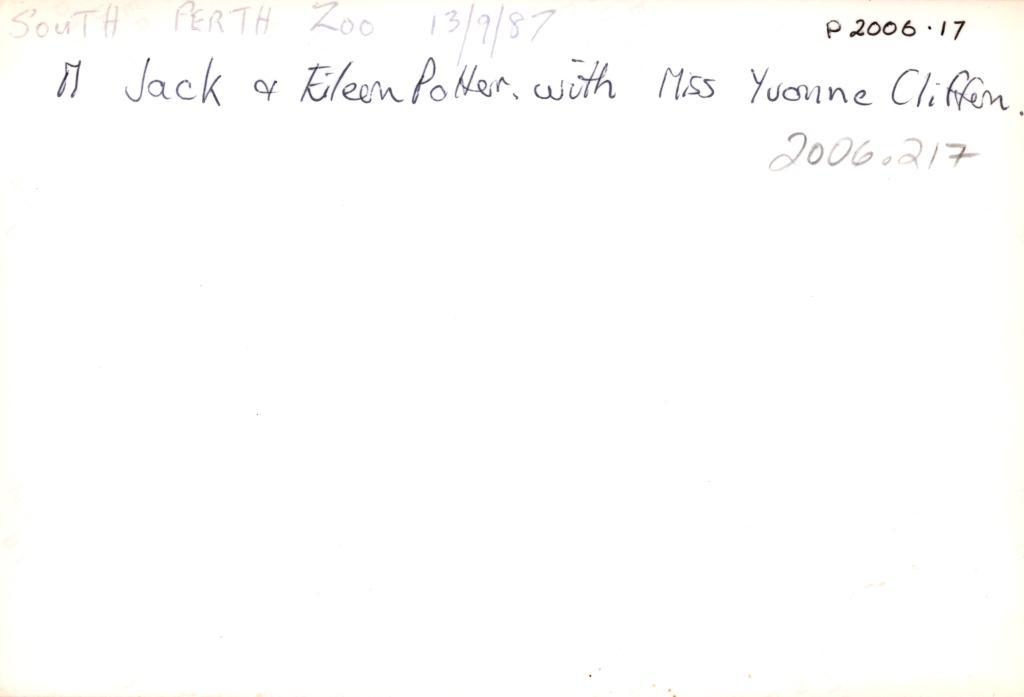 SOUTH PERTH ZOO 13/9/87
P2006.17
Jack & Eileen Potter. with Miss Yvonne Cliffen.
2006.217